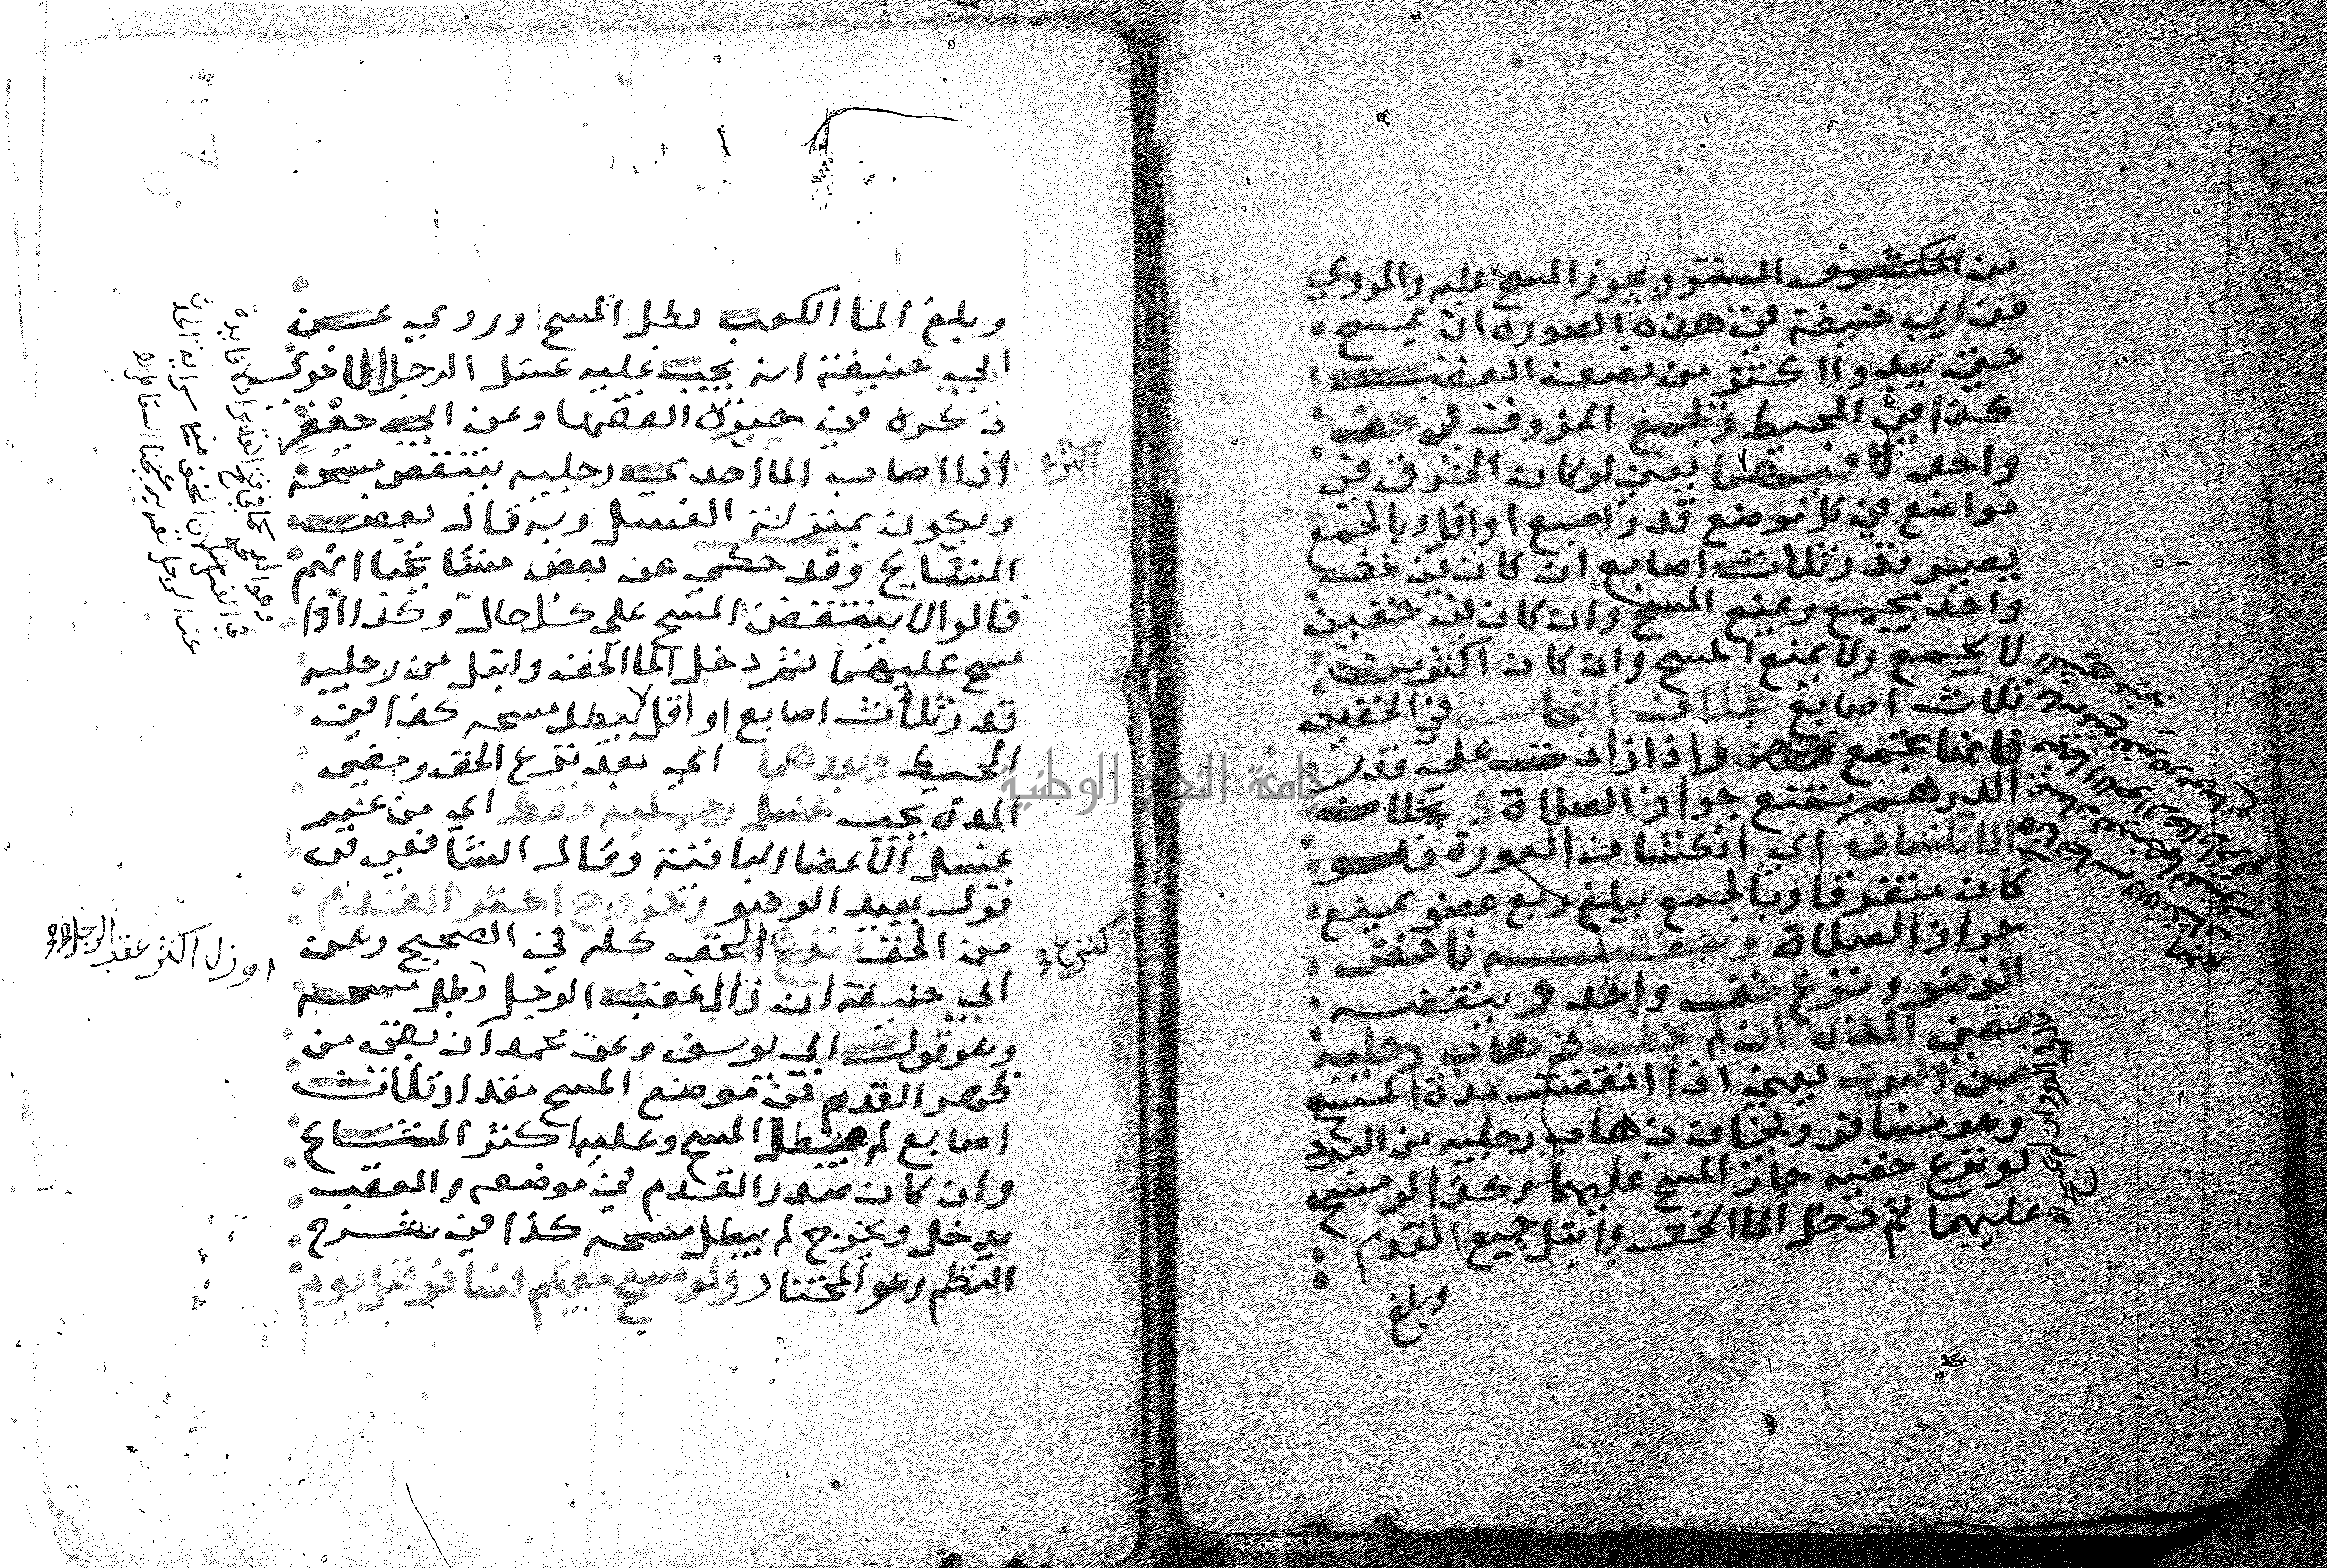 من المكشوف المستور يجوز المسح عليه والمروي
عن ابي حنيفة في هذه الصورة ان يمسح
حتى يبدوا اكثر من نصف العقب
كذا في المحيط وتجمع الخروق في خف
واحد لا فيهما يعني لو كان الخرق في
مواضع في كل موضع قدر اصبع او اقل وبالجمع
يصير قدر ثلاث اصابع ان كان في خف
واحد يجمع ويمنع المسح وان كان في خفين
لا يجمع ولا يمنع المسح وان كان اكثر من
ثلاث اصابع بخلاف النجاسة في الخفين
فانها تجمع واذا زادت على قدر
الدرهم يمنع جواز الصلاة وبخلاف
الانكشاف اي انكشاف العورة فلو
كان متفرقا وبالجمع يبلغ ربع عضو يمنع
جواز الصلاة وينقضه ناقض
الوضو ونزع خف واحد وينقضه
مضي المدة ان لم يخف ذهاب رجليه
من البرد يعني اذا انقضت مدة المسح
وهو مسافر ويخاف ذهاب رجليه من البرد
لو نزع خفيه جاز المسح عليهما وكذا لو مسح
عليهما ثم دخل الما الخف وابتل جميع القدم
وبلغ
وبلغ الما الكعب بطل المسح وروي عن
ابي حنيفة انه يجب عليه غسل الرجل الاخرى
ذكره في حيرة الفقها وعن ابي جعفر
اذا اصاب الما احدي رجليه ينتقض مسحه
ويكون بمنزلة الغسل وبه قال بعض
المشايخ وقد حكي عن بعض مشايخنا انهم
قالوا لا ينتقض المسح على كل حال وكذا اذا
مسح عليهما ثم دخل الما الخف وابتل من رجليه
قدر ثلاث اصابع او اقل لا يبطل مسحه كذا في
المحيط وبعدهما اي بعد نزع الخف ومضي
المدة يجب غسل رجليه فقط اي من غير
غسل الاعضا الباقية وقال الشافعي في
قول يعيد الوضو وخروج اكثر القدم
من الخف نزع الخف كله في الصحيح وعن
ابي حنيفة ان زال عقب الرجل بطل مسحه
وهو قول ابي يوسف وعن محمد ان بقي من
ظهر القدم في موضع المسح مقدار ثلاث
اصابع لم يبطل المسح وعليه اكثر المشايخ
وان كان صدر القدم في موضعه والعقب
يدخل ويخرج لم يبطل مسحه كذا في شرح
النظم وهو المختار ولو مسح مقيم فسافر قبل يوم
او زل اكثر عقب الرجل
جامعة النجاح الوطنية